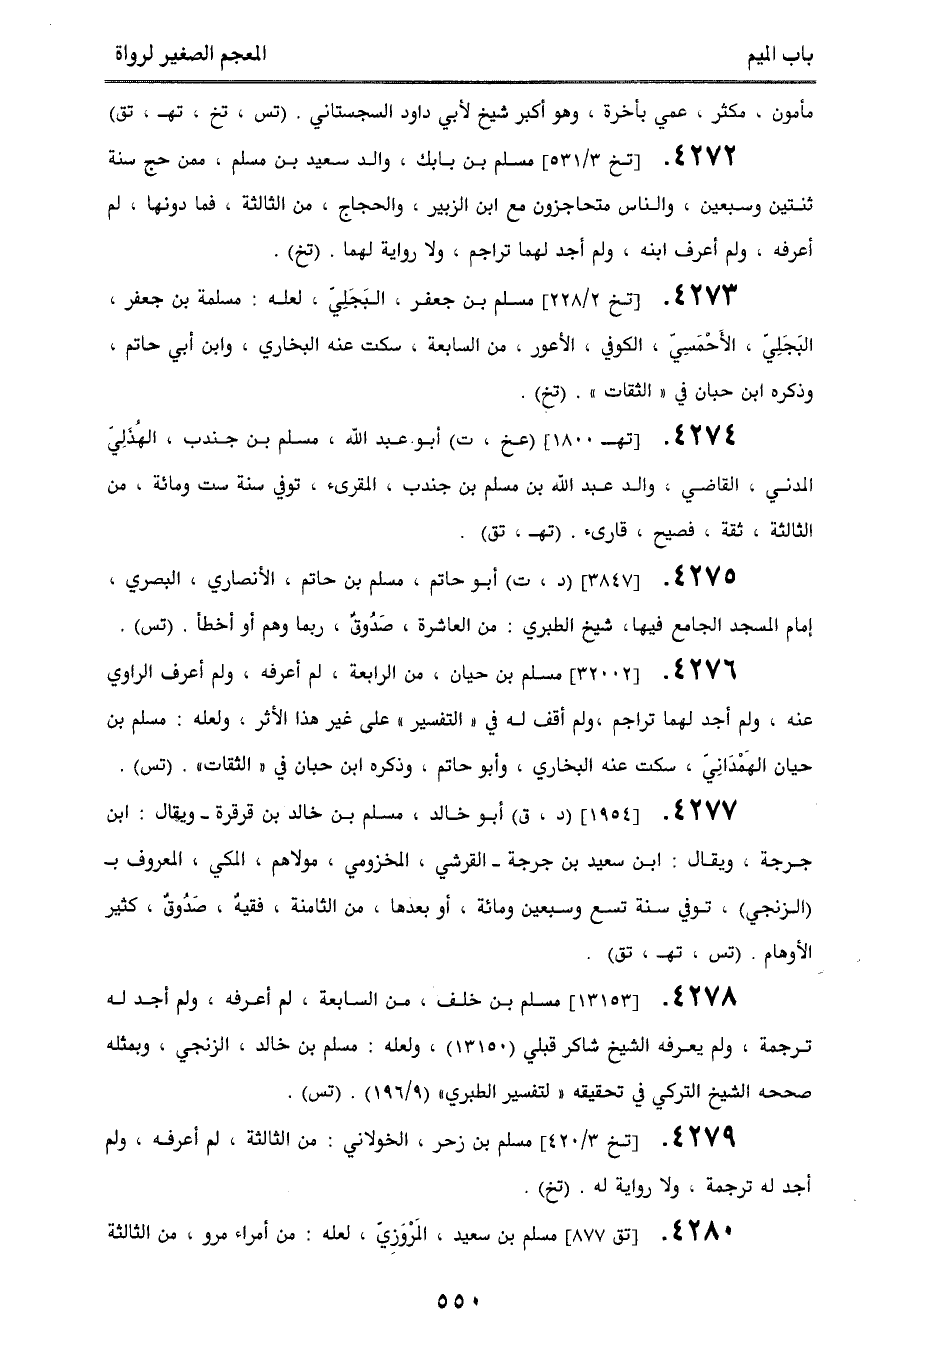 باب الميم
المعجم الصغير لرواة
مأمون ، مكثر ، عمي بأخرة ، وهو أكبر شيخ لأبي داود السجستاني . (تس ، تخ ، تهـ ، تق)
٤٢٧٢. [تخ ٥٣١/٣] مسلم بن بابك ، والد سعيد بن مسلم ، ممن حج سنة
ثنتين وسبعين ، والناس متحاجزون مع ابن الزبير ، والحجاج ، من الثالثة ، فما دونها ، لم
أعرفه ، ولم أعرف ابنه ، ولم أجد لهما تراجم ، ولا رواية لهما . (تخ) .
٤٢٧٣. [تخ ٢٢٨/٢] مسلم بن جعفر ، البَجَلِيّ ، لعله : مسلمة بن جعفر ،
البَجَلِيّ ، الأَحْمَسِيّ ، الكوفي ، الأعور ، من السابعة ، سكت عنه البخاري ، وابن أبي حاتم ،
وذكره ابن حبان في « الثقات » . (تخ) .
٤٢٧٤. [تهـ ١٨٠٠] (عخ ، ت) أبو عبد الله ، مسلم بن جندب ، الهُذَلِيّ
المدني ، القاضي ، والد عبد الله بن مسلم بن جندب ، المقرىء ، توفي سنة ست ومائة ، من
الثالثة ، ثقة ، فصيح ، قارىء . (تهـ ، تق) .
٤٢٧٥. [٣٨٤٧] (د ، ت) أبو حاتم ، مسلم بن حاتم ، الأنصاري ، البصري ،
إمام المسجد الجامع فيها، شيخ الطبري : من العاشرة ، صَدُوقٌ ، ربما وهم أو أخطأ . (تس) .
٤٢٧٦. [٣٢٠٠٢] مسلم بن حيان ، من الرابعة ، لم أعرفه ، ولم أعرف الراوي
عنه ، ولم أجد لهما تراجم ،ولم أقف له في « التفسير » على غير هذا الأثر ، ولعله : مسلم بن
حيان الهَمْدَانِيّ ، سكت عنه البخاري ، وأبو حاتم ، وذكره ابن حبان في « الثقات» . (تس) .
٤٢٧٧. [١٩٥٤] (د ، ق) أبو خالد ، مسلم بن خالد بن قرقرة ـ ويقال : ابن
جرجة ، ويقال : ابن سعيد بن جرجة ـ القرشي ، المخزومي ، مولاهم ، المكي ، المعروف بـ
(الزنجي) ، توفي سنة تسع وسبعين ومائة ، أو بعدها ، من الثامنة ، فقيهٌ ، صَدُوقٌ ، كثير
الأوهام . (تس ، تهـ ، تق) .
٤٢٧٨. [١٣١٥٣] مسلم بن خلف ، من السابعة ، لم أعرفه ، ولم أجد له
ترجمة ، ولم يعرفه الشيخ شاكر قبلي (١٣١٥٠) ، ولعله : مسلم بن خالد ، الزنجي ، وبمثله
صححه الشيخ التركي في تحقيقه « لتفسير الطبري» (١٩٦/٩) . (تس) .
٤٢٧٩. [تخ ٤٢٠/٣] مسلم بن زحر ، الخولاني : من الثالثة ، لم أعرفه ، ولم
أجد له ترجمة ، ولا رواية له . (تخ) .
٤٢٨٠. [تق ٨٧٧] مسلم بن سعيد ، المَرْوَزِيّ ، لعله : من أمراء مرو ، من الثالثة
٥٥٠